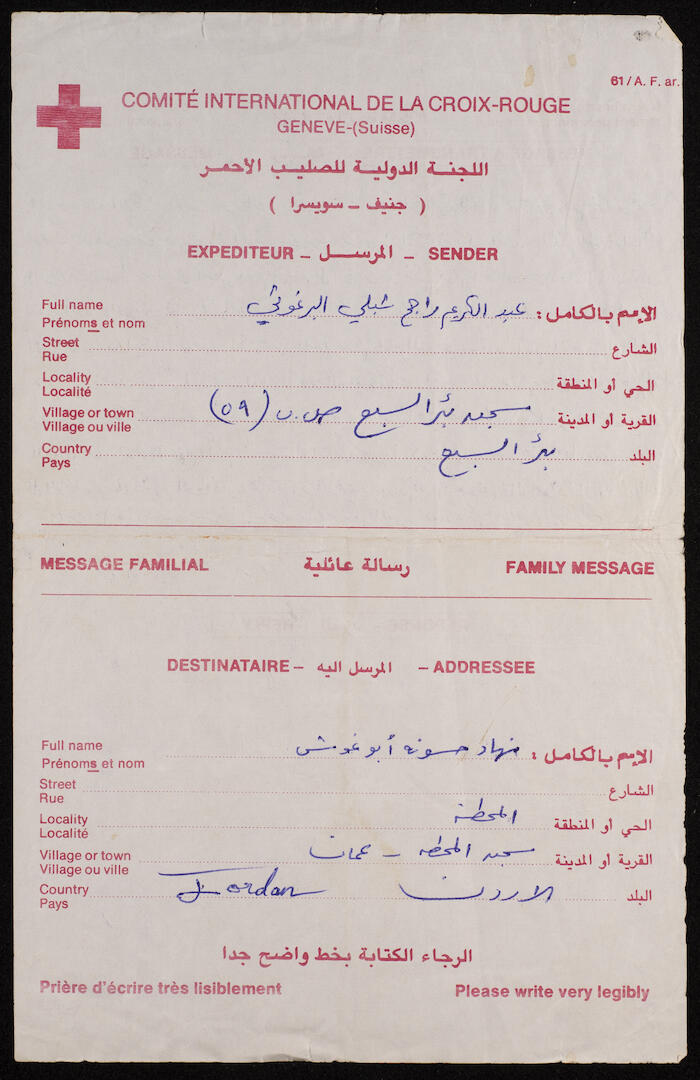 61 / A. F. ar.
COMITÉ INTERNATIONAL DE LA CROIX-ROUGE
GENEVE-(Suisse)
اللجنة الدولية للصليب الأحمر
( جنيف - سويسرا )
EXPEDITEUR - المرسل - SENDER
Full name
Prénoms et nom
الإسم بالكامل : عبد الكريم راجح شبلي البرغوثي
Street
Rue
الشارع
Locality
Localité
الحي أو المنطقة
Village or town
Village ou ville
القرية أو المدينة سجن بئر السبع ص.ب (٥٩)
Country
Pays
البلد بئر السبع
MESSAGE FAMILIAL رسالة عائلية FAMILY MESSAGE
DESTINATAIRE - المرسل اليه - ADDRESSEE
Full name
Prénoms et nom
الإسم بالكامل : نهاد حسونه أبو غوش
Street
Rue
الشارع
Locality
Localité
الحي أو المنطقة المحطة
Village or town
Village ou ville
القرية أو المدينة سجن المحطه - عمان
Country
Pays
البلد الاردن Jordan
الرجاء الكتابة بخط واضح جدا
Prière d'écrire très lisiblement Please write very legibly